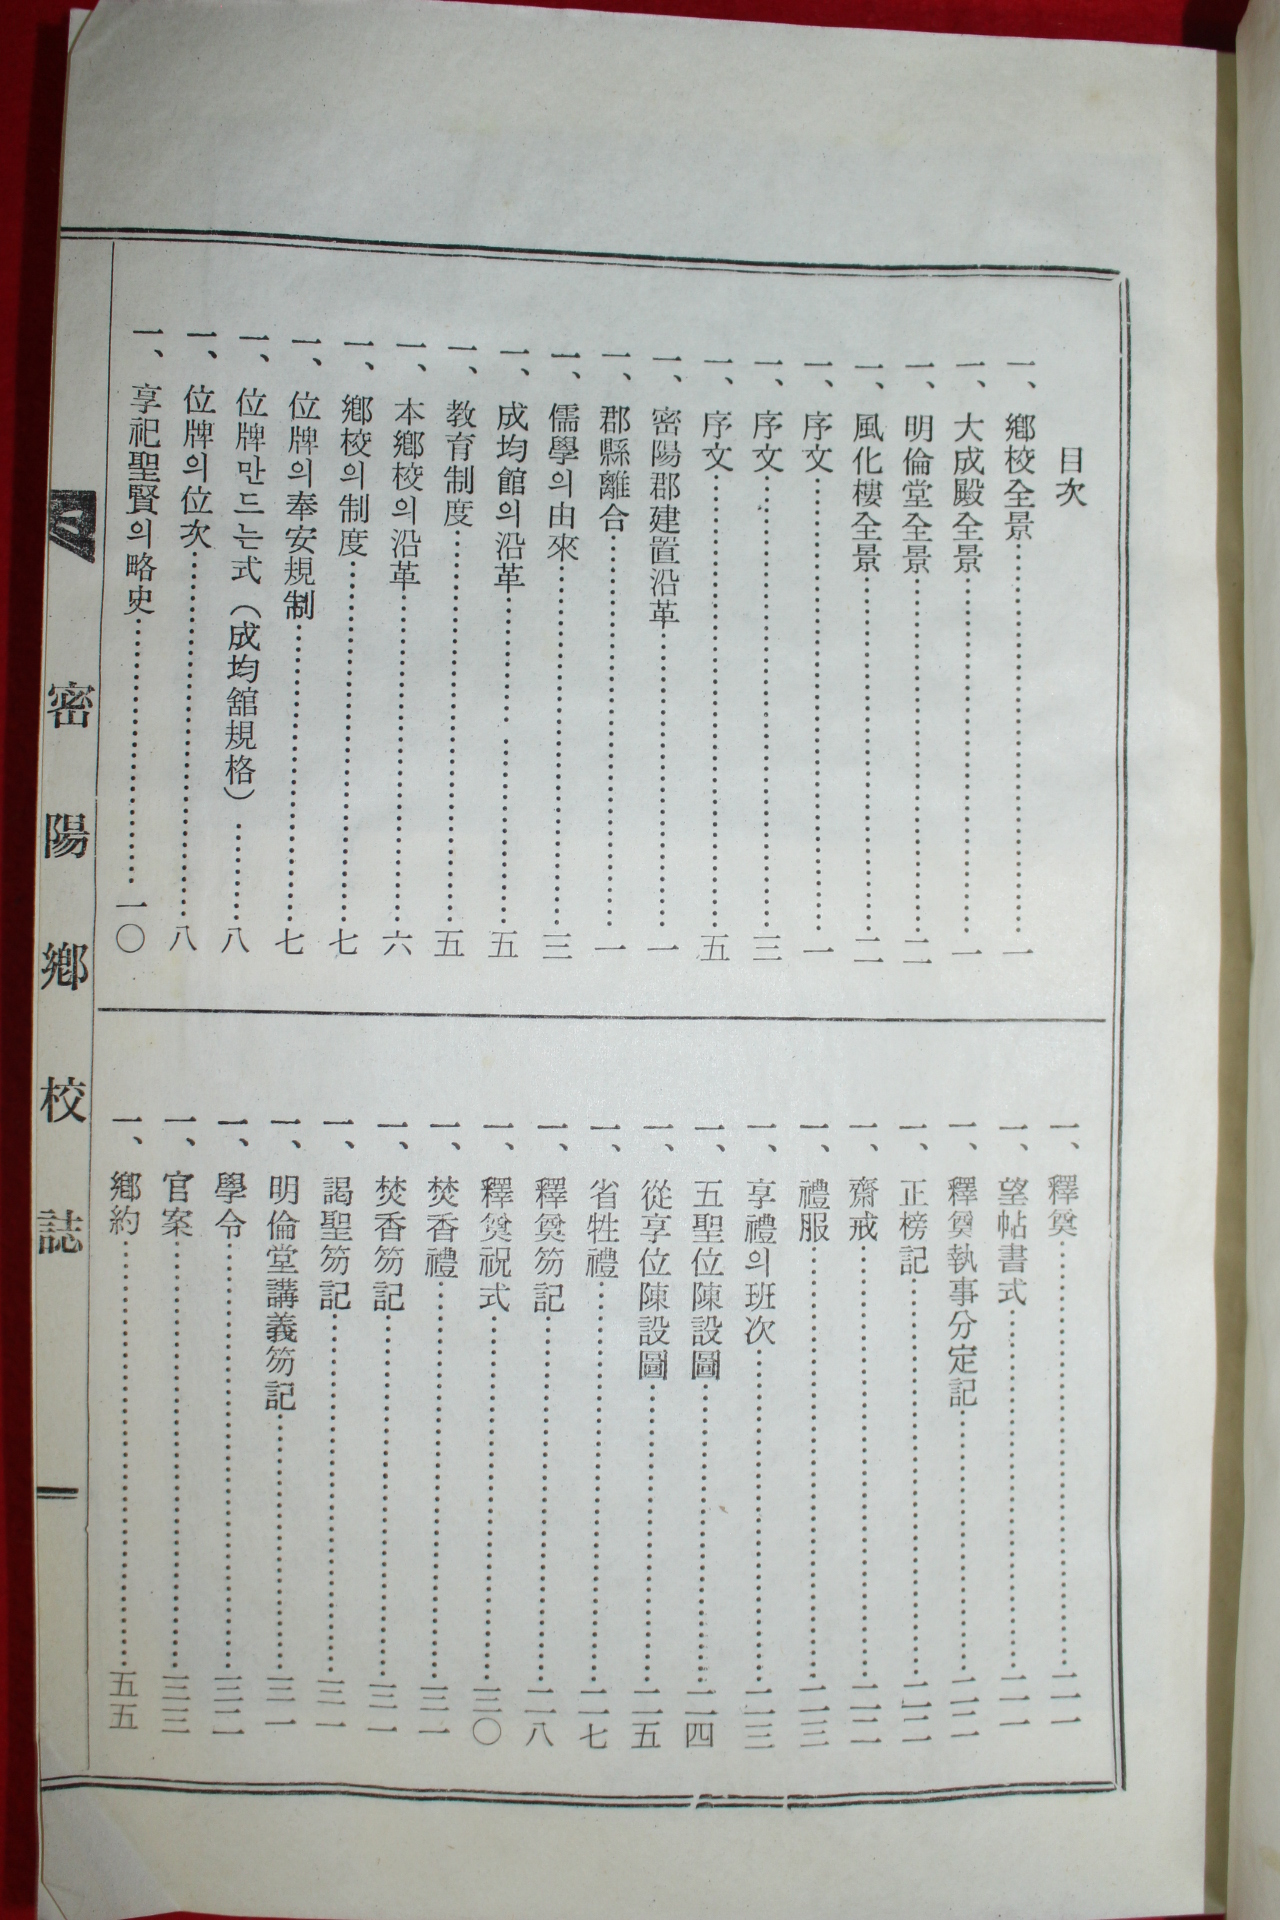 目次
一、鄉校全景………一
一、大成殿全景………一
一、明倫堂全景………二
一、風化樓全景………二
一、序文………一
一、序文………三
一、序文………五
一、密陽郡建置沿革………一
一、郡縣離合………一
一、儒學의由來………三
一、成均館의沿革………五
一、教育制度………五
一、本鄉校의沿革………六
一、鄉校의制度………七
一、位牌의奉安規制………七
一、位牌만드는式(成均舘規格)………八
一、位牌의位次………八
一、享祀聖賢의略史………一〇
一、釋奠………二一
一、望帖書式………二一
一、釋奠執事分定記………二二
一、正榜記………二二
一、齋戒………二二
一、禮服………二三
一、享禮의班次………二三
一、五聖位陳設圖………二四
一、從享位陳設圖………二五
一、省牲禮………二七
一、釋奠笏記………二八
一、釋奠祝式………三〇
一、焚香禮………三一
一、焚香笏記………三一
一、謁聖笏記………三一
一、明倫堂講義笏記………三一
一、學令………三二
一、官案………三三
一、鄉約………五五
密陽鄉校誌
一